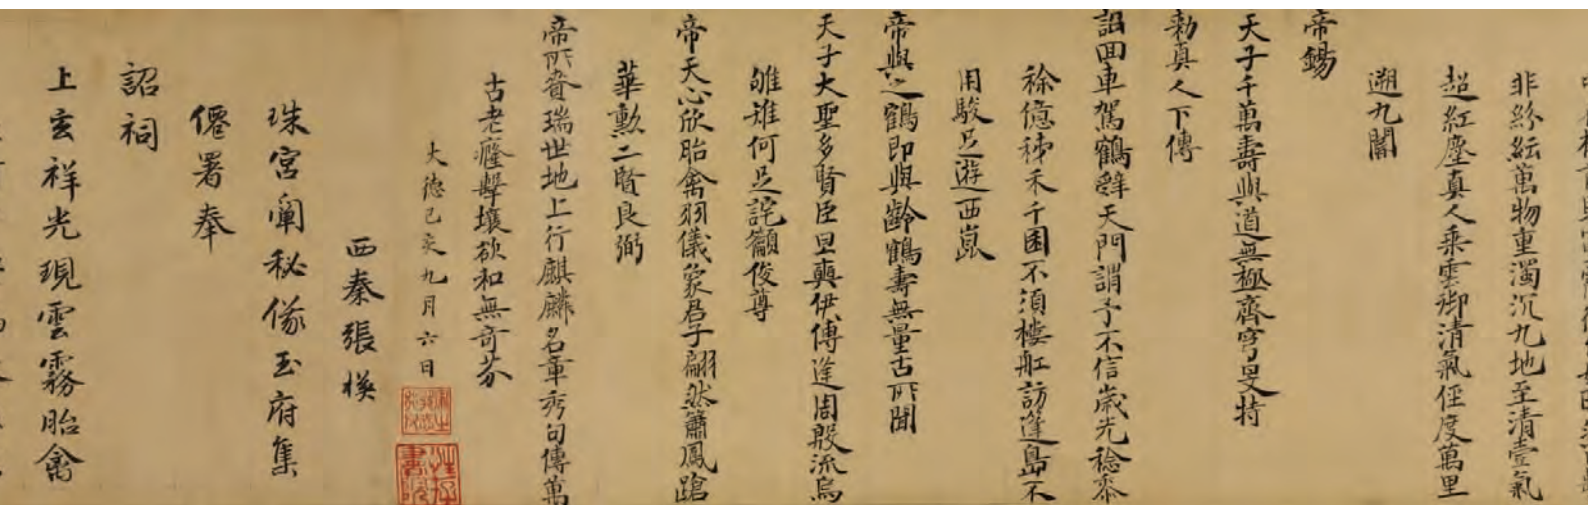 非紛紜萬物重濁沉九地至清壹氣
超紅塵真人乘雲御清氣俓度萬里
遡九閽
帝錫
天子千萬壽與道無極齊穹旻特
勑真人下傳
詔回車駕鶴辤天門謂予不信歲先稔黍
稌億秭禾千囷不須樓舡訪逢島不
用駿足遊西崑
帝與之鶴即與齡鶴壽無量古所聞
天子大聖多賢臣旦奭伊傅逢周殷流烏
雊雉何足詫籲俊尊
帝天心欣胎禽羽儀象君子翩然簫鳳蹌
華勳二賢良弼
帝所賚瑞世地上行麒麟名章秀句傳萬
古老癃擊壤欲和無奇芬
大德己亥九月六日
西秦張楧
珠宮闡秘偹玉府集
僊署奉
詔祠
上玄祥光現雲霧胎禽